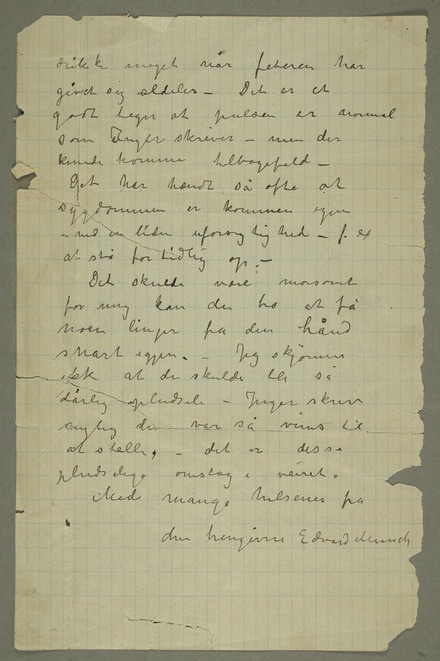 drikke meget når feberen har
givet sig aldeles – Det er et
godt tegn at pulsen er normal
som Inger skriver – men der
kunde komme tilbagefald –
Det har hændt så ofte at
sygdommen er kommen igen
ved en liden uforsigtighed – f. ex
at stå for tidlig op. –
Det skulde være morsomt
for mig kan du tro at få
noen linjer fra din hånd
snart igjen. – Jeg skjønner
ikke at du skulde bli så
dårlig pludselig – Inger skrev
du var så vims til
at stelle, – det er disse
pludselige omslag i veiret.
Med mange hilsener fra
din hengivne Edvard Munch